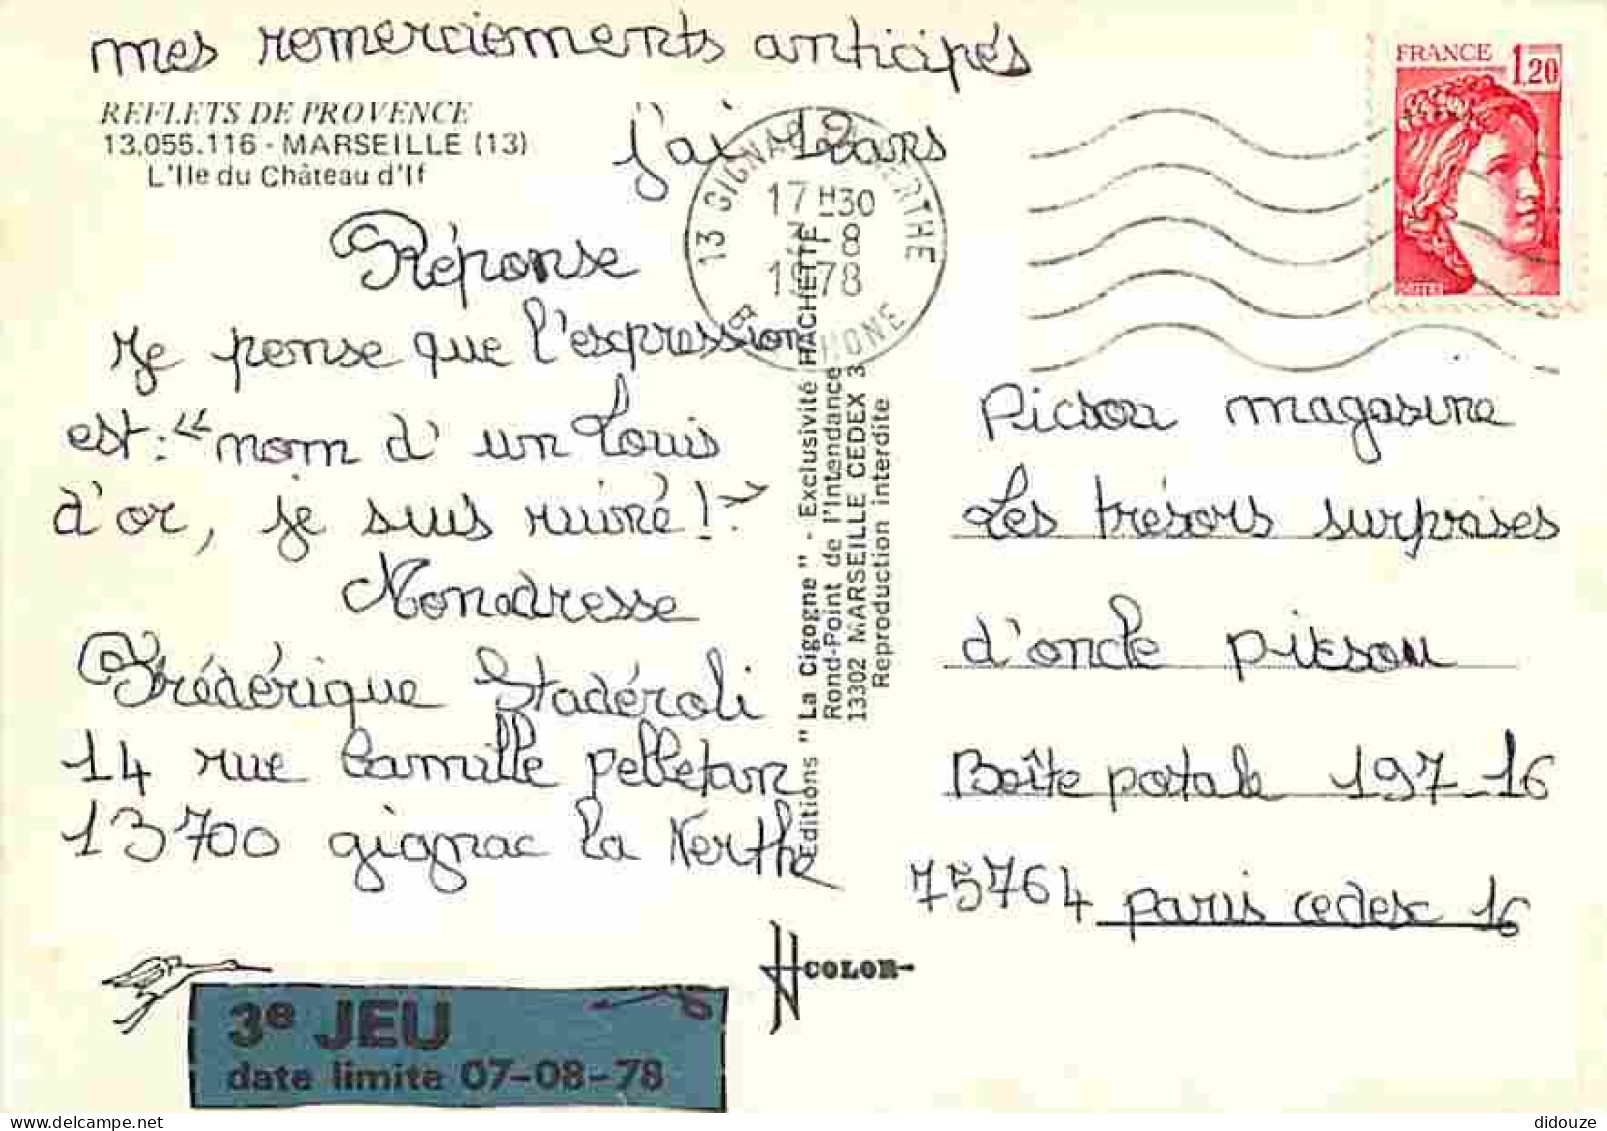 mes remerciements anticipés
REFLETS DE PROVENCE
13.055.116 - MARSEILLE (13)
L'Ile du Château d'If
j'ai 12 ans
Réponse
Je pense que l'expression
est: "nom d'un Louis
d'or, je suis ruiné!"
Mon adresse
Frédérique Stadéroli
14 rue Camille Pelletan
13700 gignac la Nerthe
13 GIGNAC NERTHE
17 H30
8
1978
B HONE
FRANCE
1,20
Editions "La Cigogne" - Exclusivité HACHETTE
Rond-Point de l'Intendance
13302 MARSEILLE CEDEX 3
Reproduction interdite
Picsou magasine
Les trésors surprises
d'oncle picsou
Boîte potale 197-16
75764 paris cedex 16
COLOR
3e JEU
date limite 07-08-78
didouze